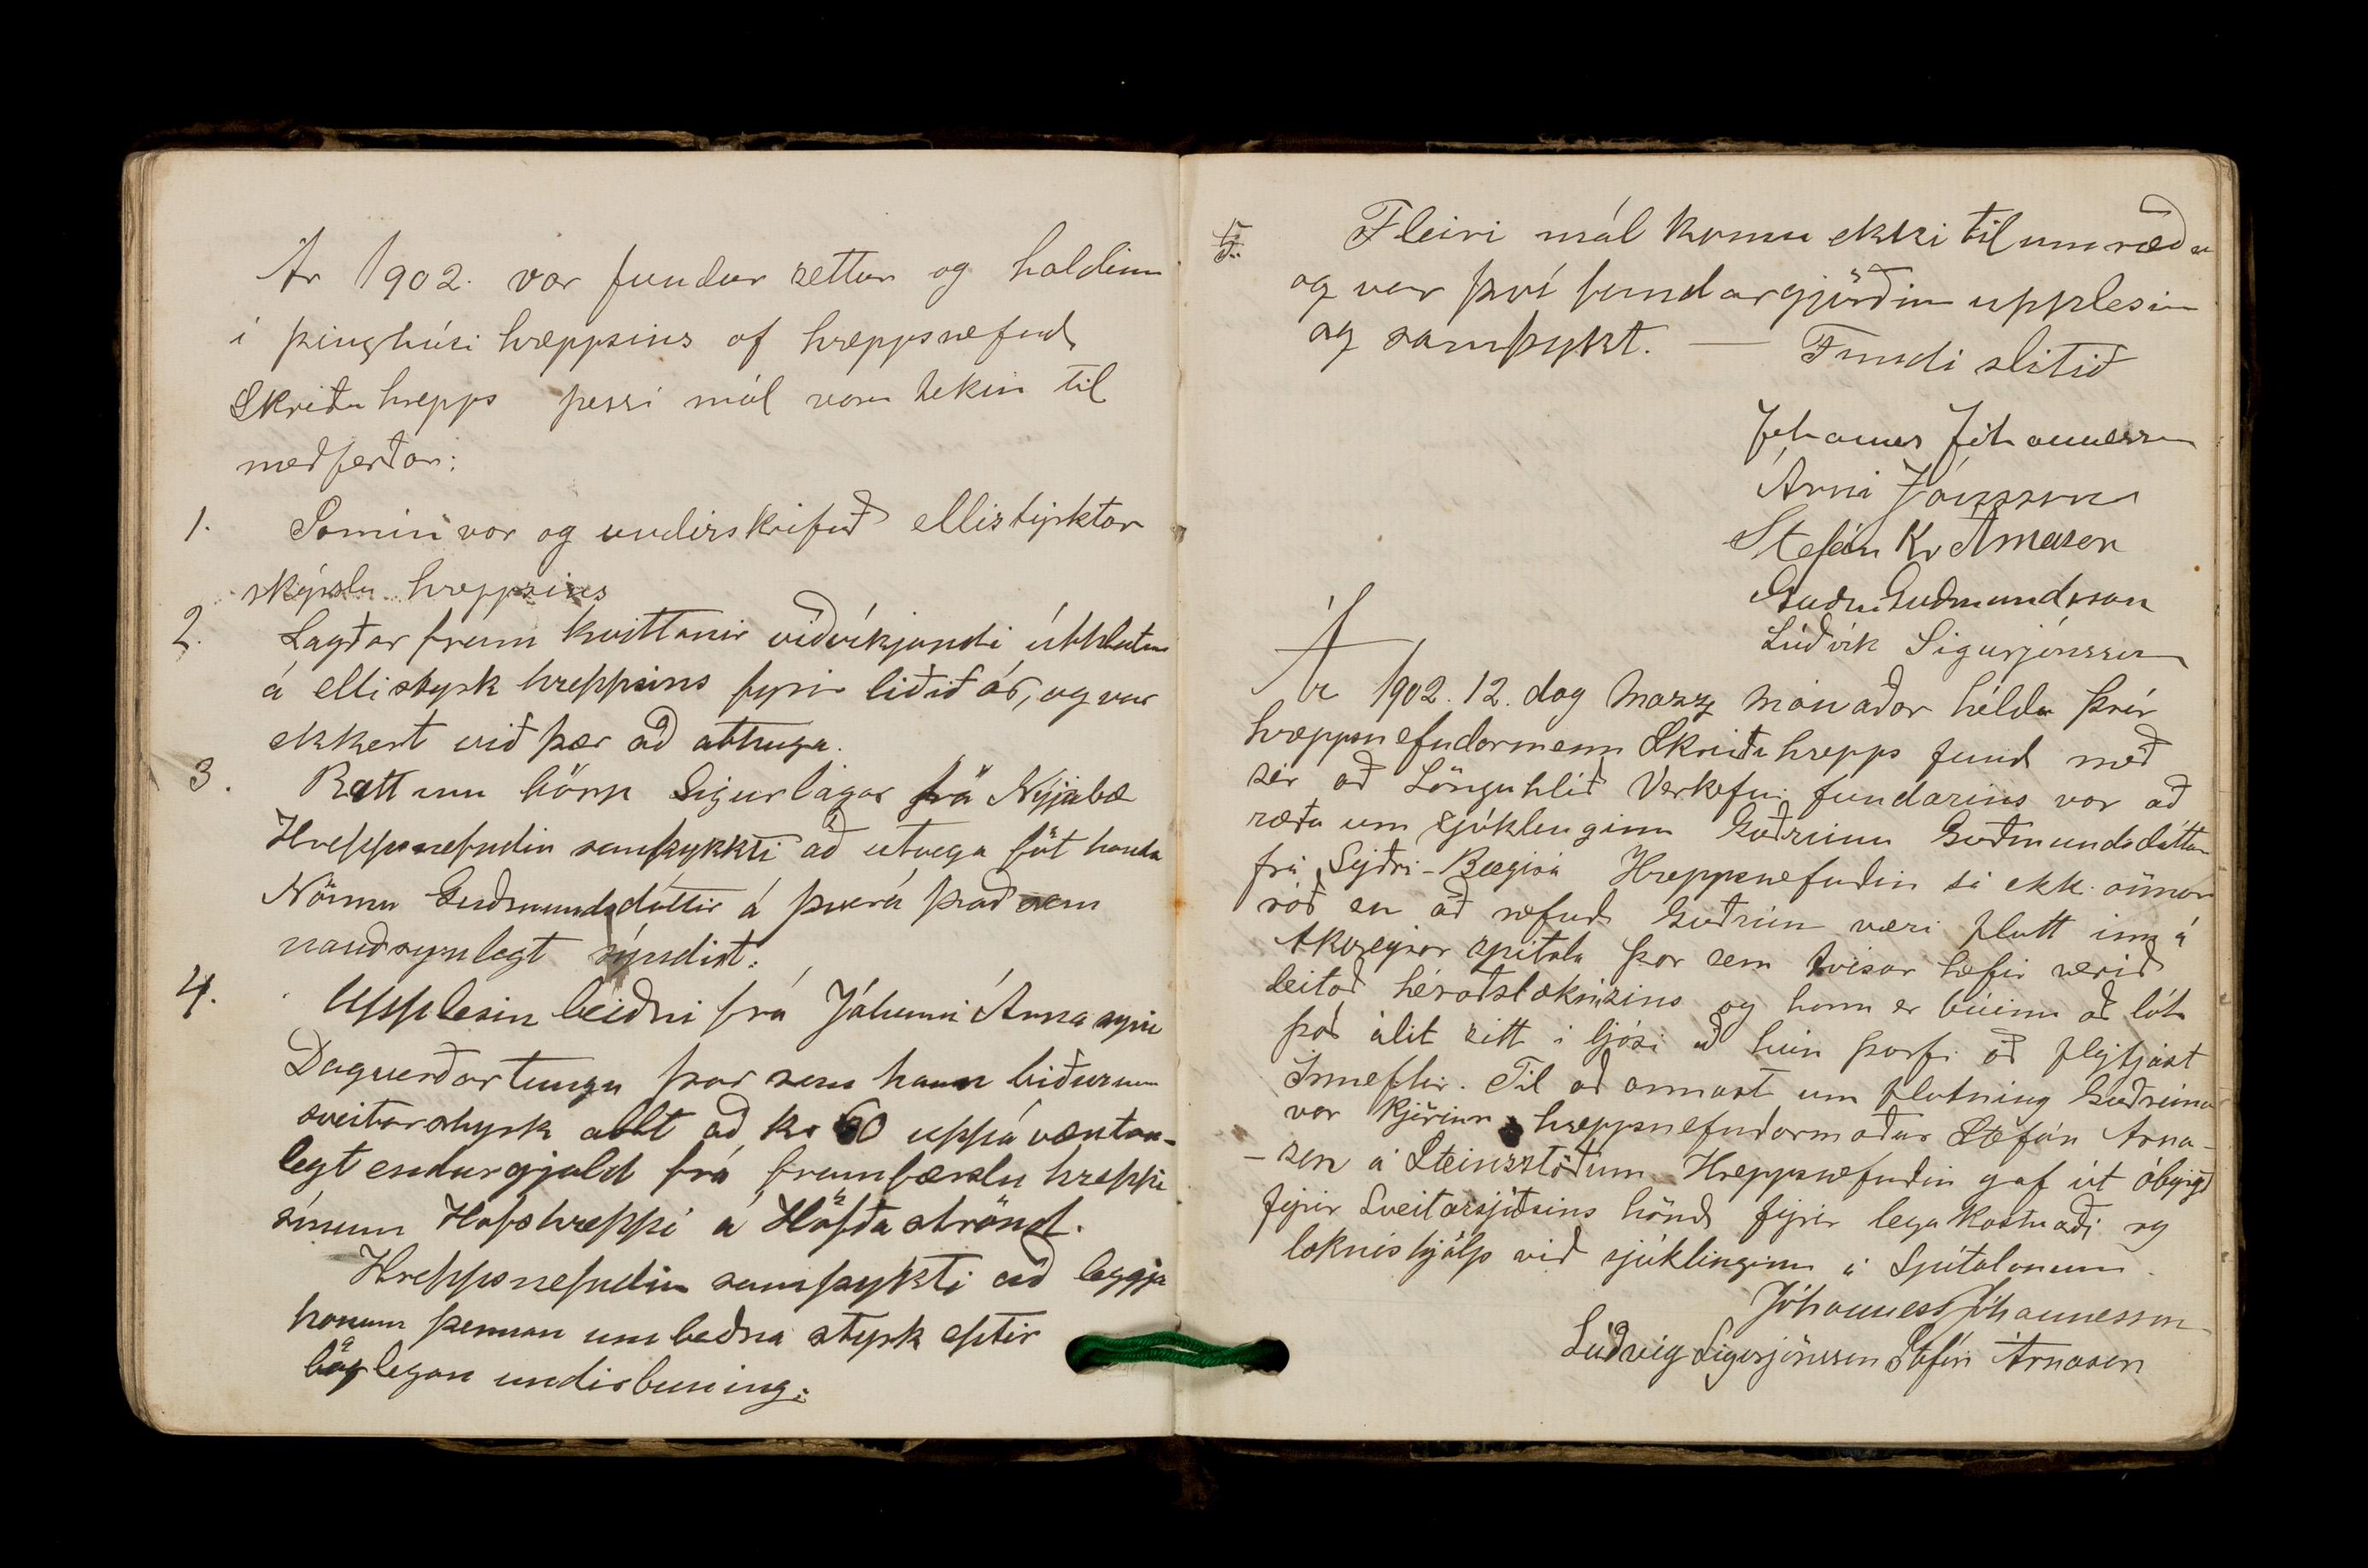 Ár 1902. var fundur settur og haldinn
í þinghúsi hreppsins af hreppsnefnd
Skriðuhrepps þessi mál voru tekin til
meðferðar:
1. Samin var og undirskrifuð ellistyrktar
skýrslu hreppsins
2. Lagðar fram kvittanir viðvíkjandi úthlutun
á ellistyrk hreppsins fyrir liðið ár, og var
ekkert við þær að athuga.
3. Rætt um börn Sigurlägar frá Nýjabæ
Hreppsnefndin samþykkti að utvega föt handa
Nönnu Guðmundsdóttir á þverá það sem
nauðsynlegt sýndist:
4. Upplesin beiðni frá Jóhanni Árnasyni
Dagverðartungu þar sem hann biður um
sveitarstyrk allt að kr 60 uppá væntan-
legt endurgjald frá framfærslu hreppi
sínum Hofshreppi á Höfðaströnd.
Hreppsnefndin samþykti að leggja
honum þennan umbeðna styrk eptir
löglegan undirbuning:
5. Fleiri mál komu ekki til umræðu
og var því fundargjörðin upplesin
og samþykt. — Fundi slitið
Jóhannes Jóhannesson
Árni Jónsson
Stefán Kr Árnason
Guðm Guðmundsson
Lúðvík Sigurjónsson
Ár 1902. 12. dag Marz mánaðar héldu þrír
hreppsnefndarmenn Skriðuhrepps fund með
sér að Lönguhlíð Verkefni fundarins var að
ræða um sjúklinginn Guðrúnu Guðmundsdóttur
frá Syðri-Bægisá Hreppsnefndin sá ekk. annað
ráð en að nefnd Guðrún væri flutt inn á
Akureyrar spitala þar sem tvisar hefir verið
leitað héraðslæknisins og hann er búinn að láta
það álit sitt í ljósi að hún þarfi að flytjast
inneftir. Til að annast um flutning Guðrúnar
var kjörinn hreppsnefndarmaður Stefán Árna-
-son á Steinsstöðum Hreppsnefndin gaf út ábyrgð
fyrir Sveitarsjóðsins hönd fyrir legukostnaði og
læknishjálp við sjúklinginn á Spítalanum.
Jóhannes Jóhannesson
Lúðvig Sigurjónsson Stefán Árnason